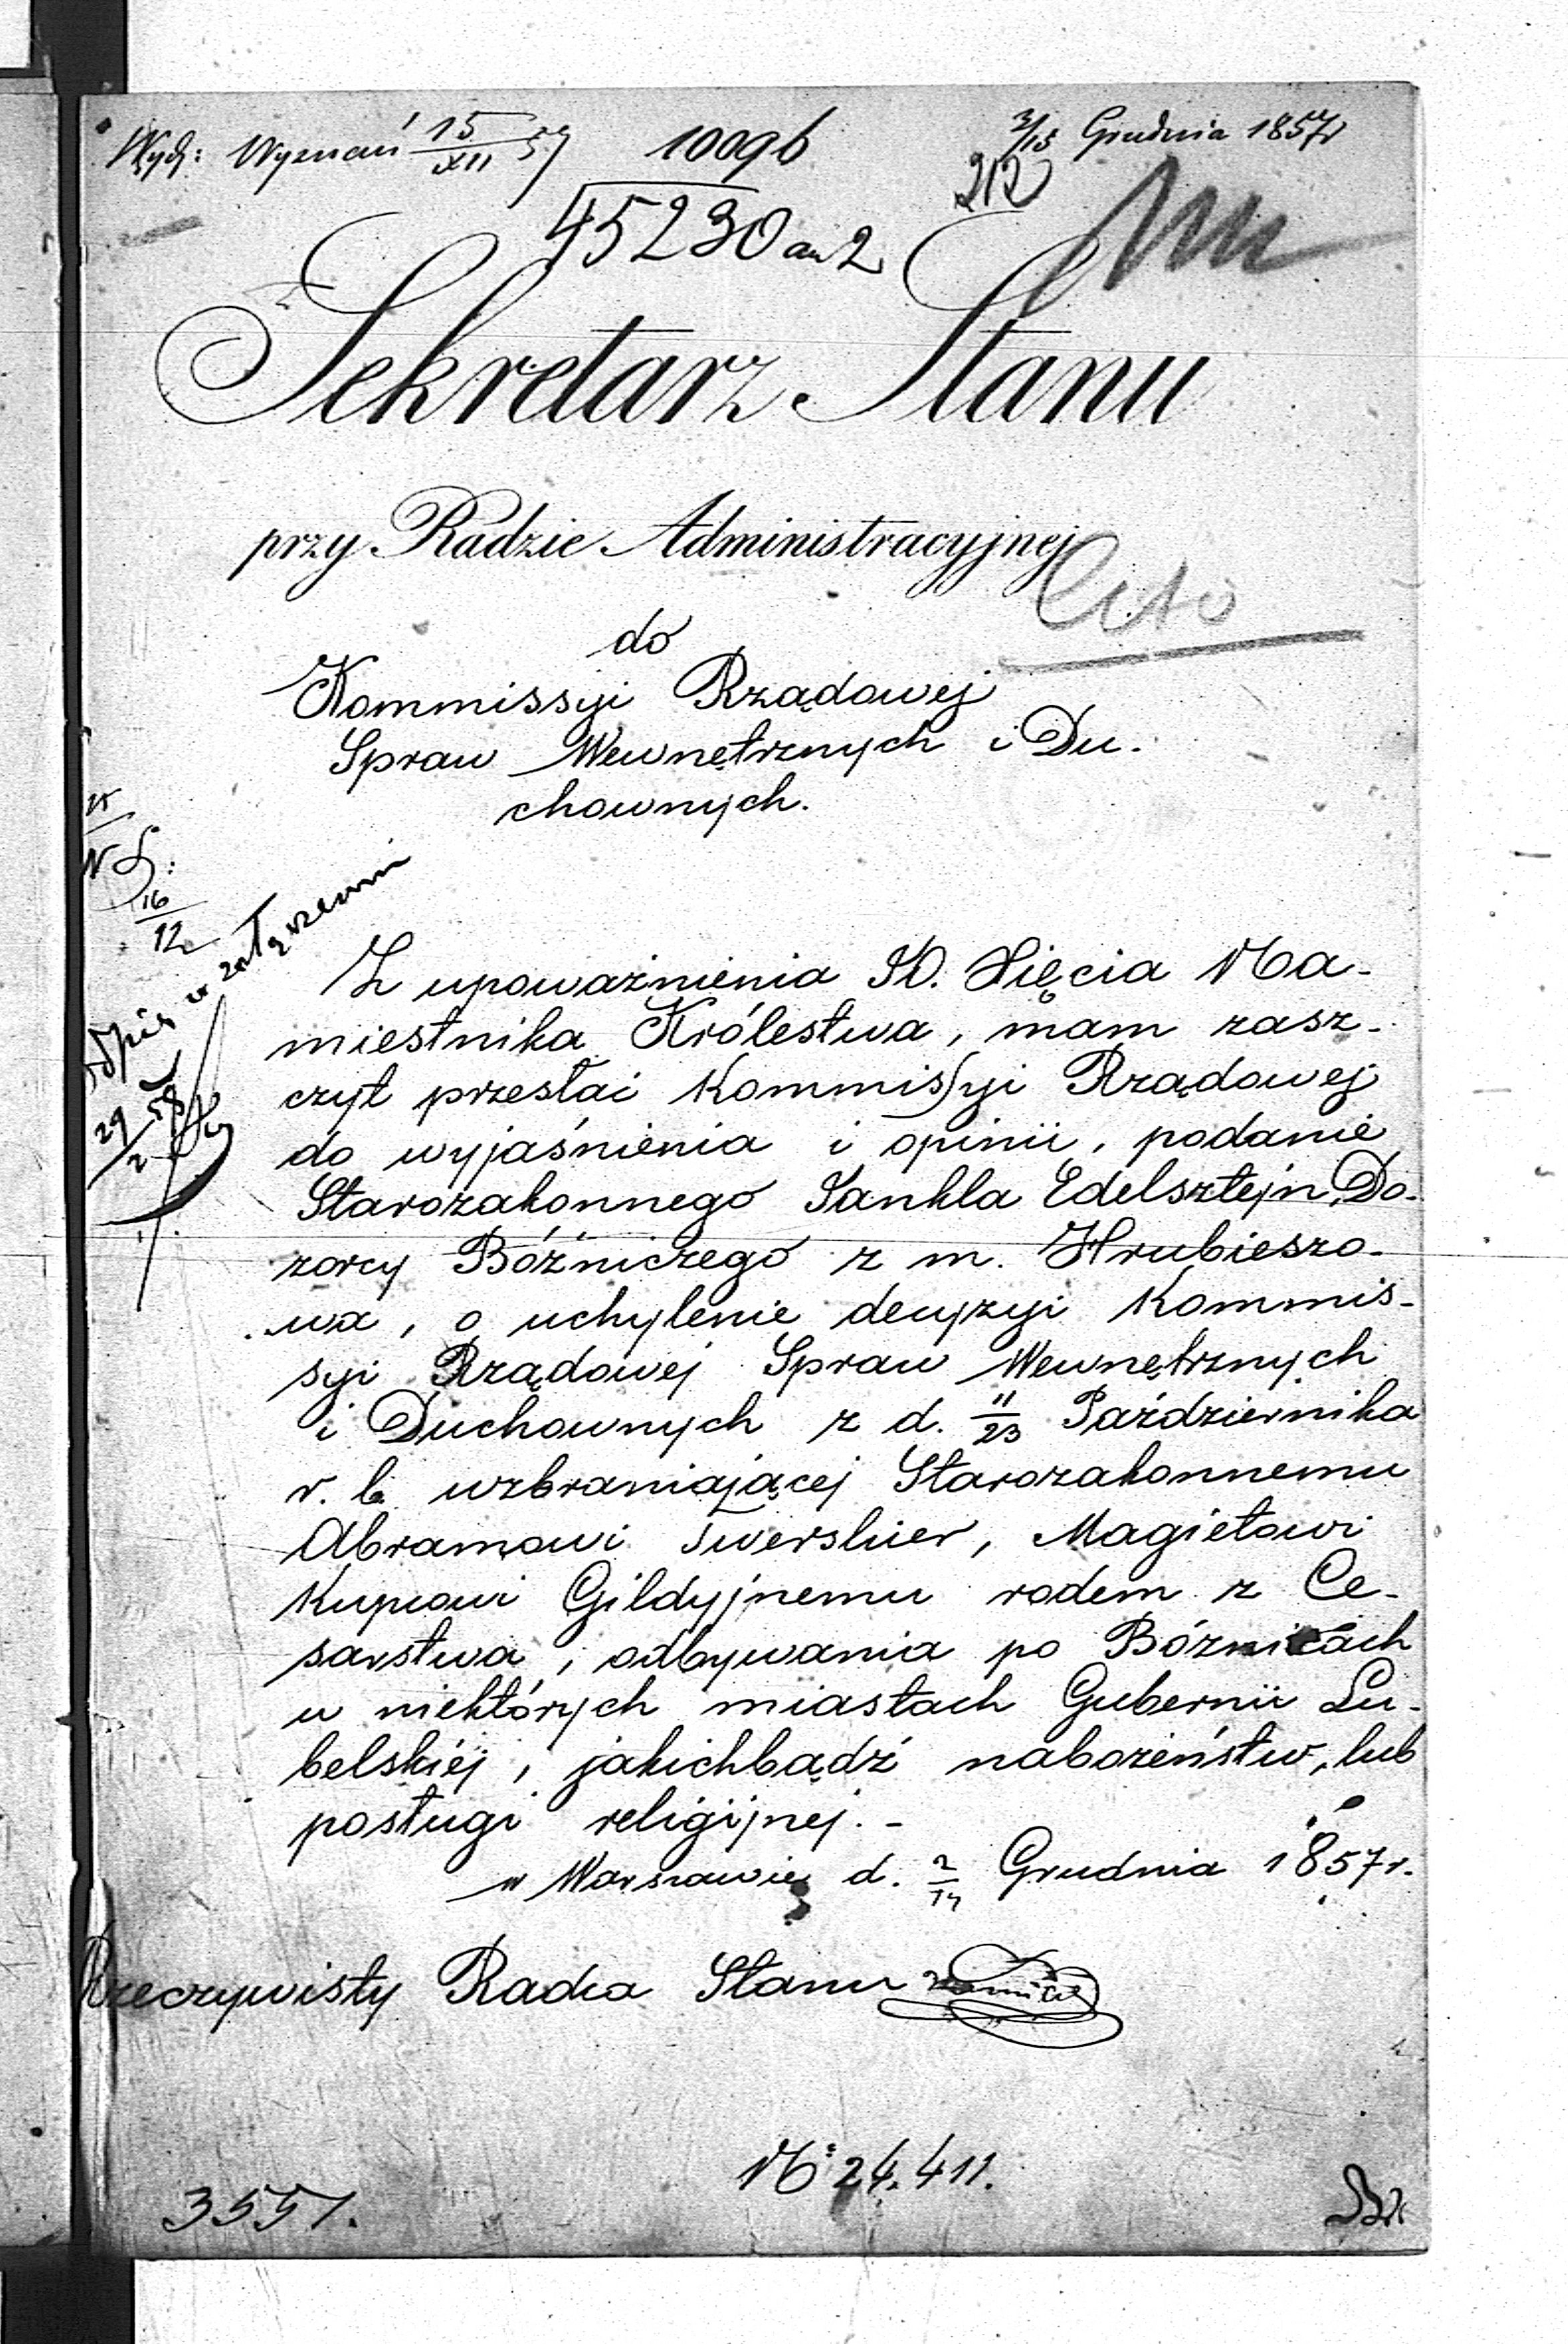 Wydz: Wyznań 15/XII 57 10096 3/15 Grudnia 1857r
212
45230 an 2
Sekretarz Stanu
przy Radzie Administracyjnej
Cito
do
Kommissyi Rządowej
Spraw Wewnętrznych i Du-
chownych.
16/12
w załączeniu
29/2 58
Z upoważnienia JO. Xięcia Na-
miestnika Królestwa, mam zasz-
czyt przesłać Kommissyi Rządowej
do wyjaśnienia i opinii, podanie
Starozakonnego Jankla Edelsztejn Do-
zorcy Bóźniczego z m. Hrubieszo-
wa, o uchylenie decyzyi Kommis-
syi Rządowej Spraw Wewnętrznych
i Duchownych z d. 11/23 Października
r. b. wzbraniającej Starozakonnemu
Abramowi Twerskier, Magietowi
Kupcowi Gildyjnemu rodem z Ce-
sarstwa, odbywania po Bóźnicach
w niektórych miastach Gubernii Lu-
belskiéj, jakichbądź nabożeństw, lub
posługi religijnej.-
w Warszawie d. 2/14 Grudnia 1857r.
Rzeczywisty Radca Stanu
No 24.411.
3557.